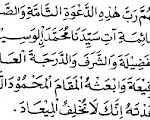 هُمَّ رَبَّ هٰذِهِ الدَّعْوَةِ التَّامَّةِ وَالصَّـ
ـائِمَةِ آتِ سَيِّدَنَا مُحَمَّدًا الْوَسِيـ
ـفَضِيلَةَ وَالشَّرَفَ وَالدَّرَجَةَ الْعَا
ـفِيعَةَ وَابْعَثْهُ الْمَقَامَ الْمَحْمُودَ الَّـ
ـدْتَهُ إِنَّكَ لَا تُخْلِفُ الْمِيعَادَ